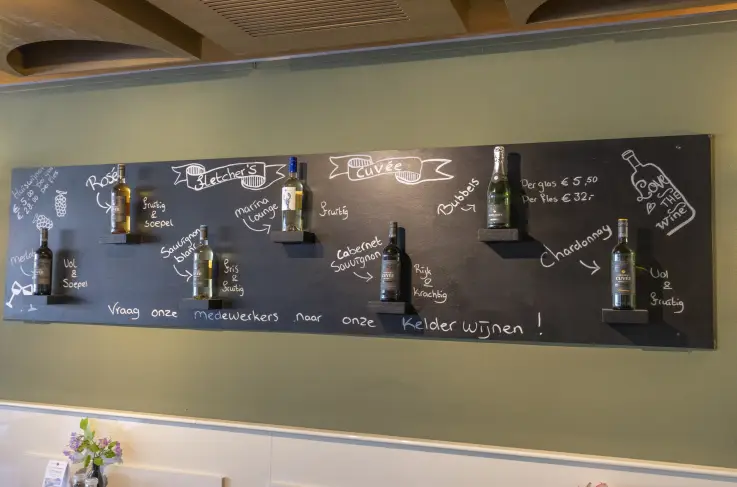 Huiswijnen
Merlot
Vol
&
Soepel
Rosé
fruitig
&
Soepel
Fletcher's
Sauvignon
blanc
Fris
&
fruitig
Marina
Lounge
fruitig
Cuvée
Cabernet
Sauvignon
Rijk
&
Krachtig
Bubbels
Per glas € 5,50
Per fles € 32,-
Chardonnay
Vol
&
fruitig
Love
THE
wine
Vraag onze medewerkers naar onze Kelder wijnen !